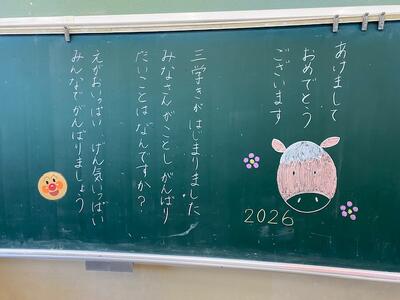 あけまして
おめでとう
ございます
三学きがはじまりました
みなさんがことしがんばり
たいことはなんですか?
えがおいっぱい、げん気いっぱい
みんなでがんばりましょう
2026